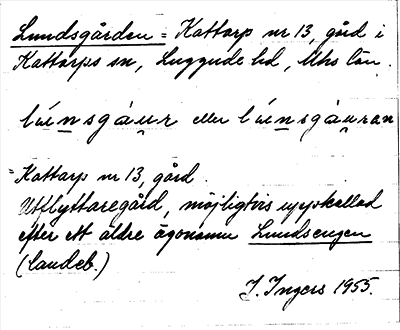 Lundsgården = Kattarp nr 13, gård i
Kattarps sn, Luggude hd, Mhs län.
lúnsgáur eller lúnsgáuran
= Kattarp nr 13, gård.
Utflyttaregård, möjligtvis uppkallad
efter ett äldre ägonamn Lundsengen
(Landeb.)
J. Ingers 1955.